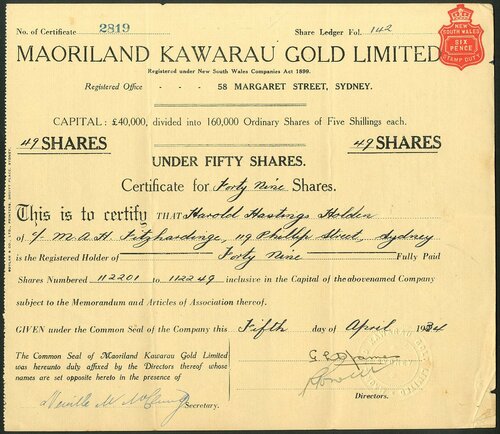 No. of Certificate 2819 Share Ledger Fol. 142
NEW SOUTH WALES
SIX PENCE
STAMP DUTY
MAORILAND KAWARAU GOLD LIMITED
Registered under New South Wales Companies Act 1899.
Registered Office - - - 58 MARGARET STREET, SYDNEY.
CAPITAL: £40,000, divided into 160,000 Ordinary Shares of Five Shillings each.
49 SHARES 49 SHARES
UNDER FIFTY SHARES.
Certificate for Forty Nine Shares.
This is to certify THAT Harold Hastings Holden
of c/- M.A.H. Fitzhardinge, 119 Phillip Street, Sydney
is the Registered Holder of Forty Nine Fully Paid
Shares Numbered 112201 to 112249 inclusive in the Capital of the abovenamed Company
subject to the Memorandum and Articles of Association thereof.
GIVEN under the Common Seal of the Company this Fifth day of April 1934
The Common Seal of Maoriland Kawarau Gold Limited
was hereunto duly affixed by the Directors thereof whose
names are set opposite hereto in the presence of
Secretary.
Directors.